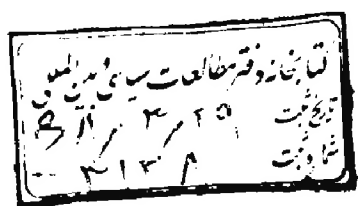 کتابخانه دفتر مطالعات سیاسی و بین المللی
تاریخ ثبت ۲۵ / ۳ /
شماره ثبت ۳۱۳۸